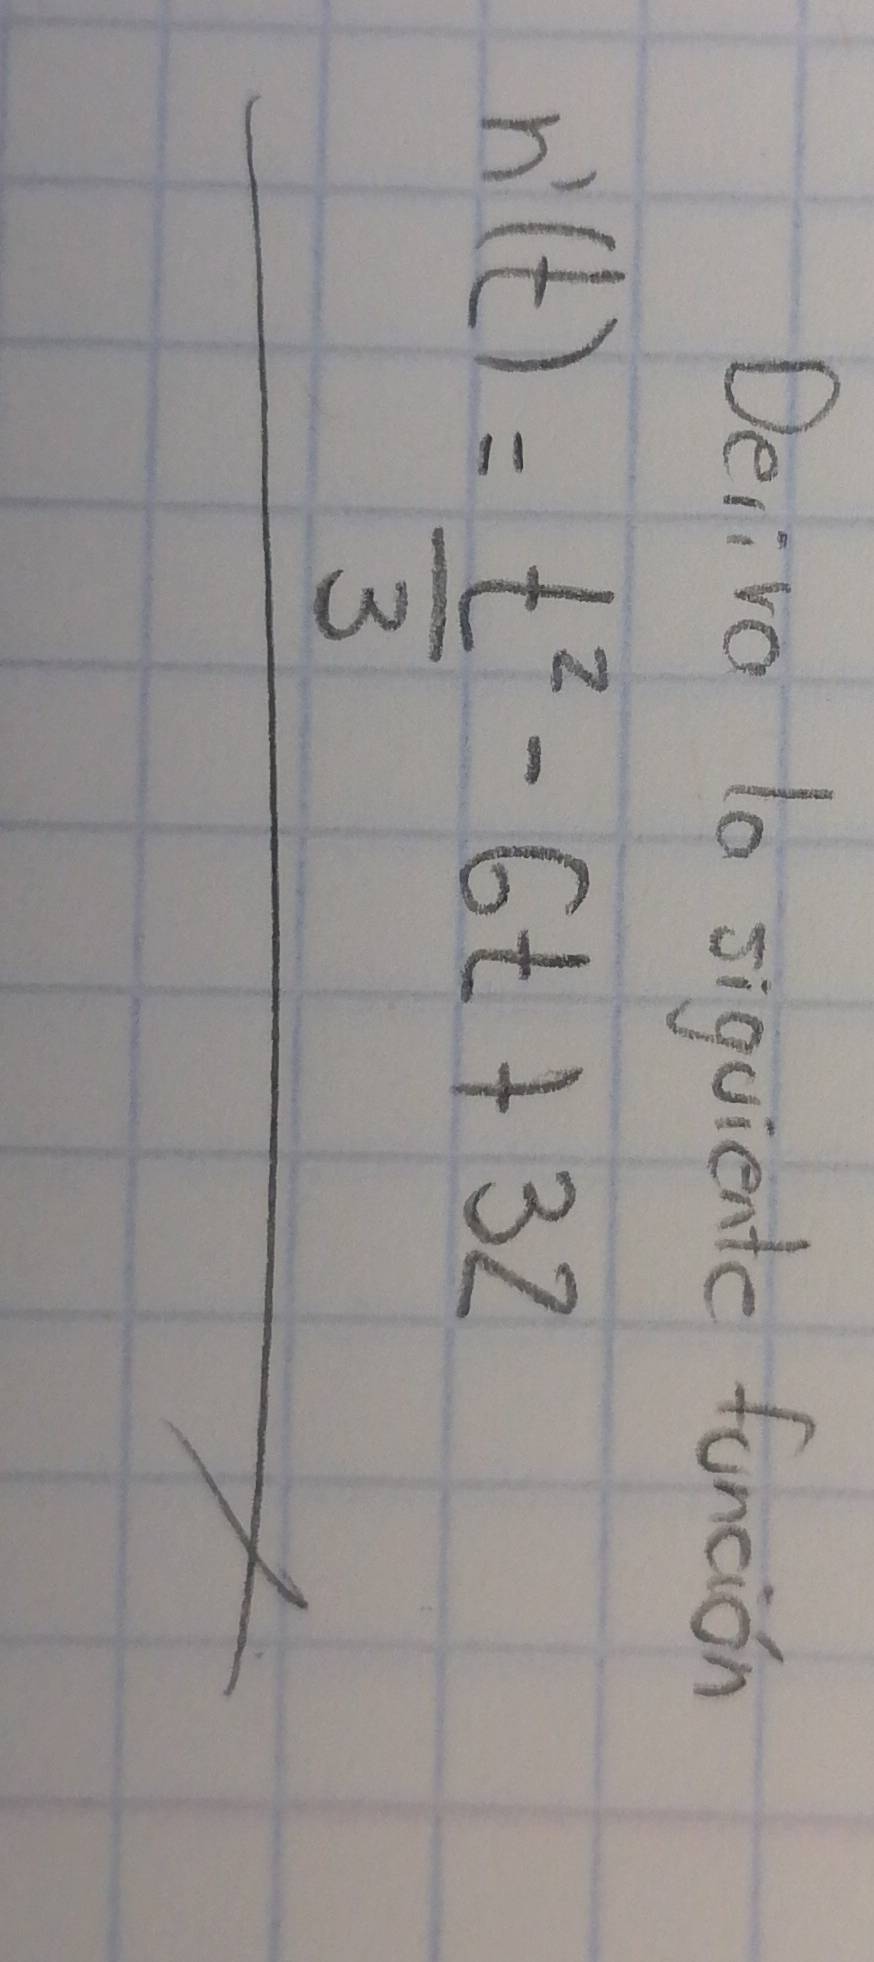 Derivo la siguiente función
h'(t) = t² - 6t + 32
3